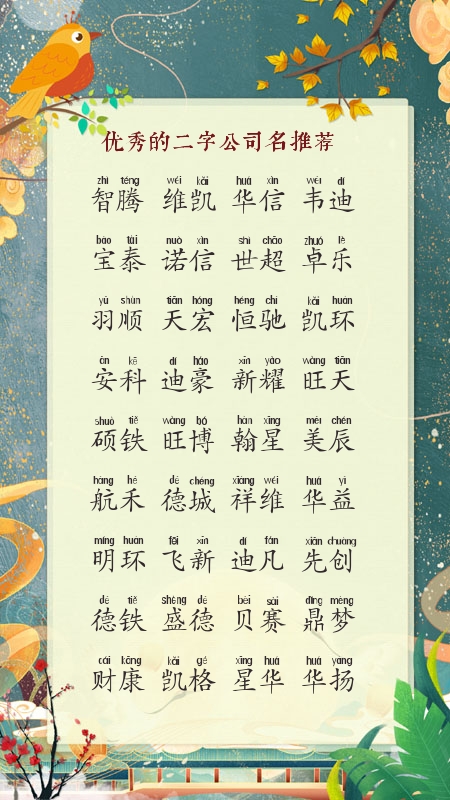 优秀的二字公司名推荐
zhì téng wéi kǎi huá xìn wéi dí
智腾 维凯 华信 韦迪
bǎo tài nuò xìn shì chāo zhuó lè
宝泰 诺信 世超 卓乐
yǔ shùn tiān hóng héng chí kǎi huán
羽顺 天宏 恒驰 凯环
ān kē dí háo xīn yào wàng tiān
安科 迪豪 新耀 旺天
shuò tiě wàng bó hàn xīng měi chén
硕铁 旺博 翰星 美辰
háng hé dé chéng xiáng wéi huá yì
航禾 德城 祥维 华益
míng huán fēi xīn dí fán xiān chuàng
明环 飞新 迪凡 先创
dé tiě shèng dé bèi sài dǐng mèng
德铁 盛德 贝赛 鼎梦
cái kāng kǎi gé xīng huá huá yáng
财康 凯格 星华 华扬